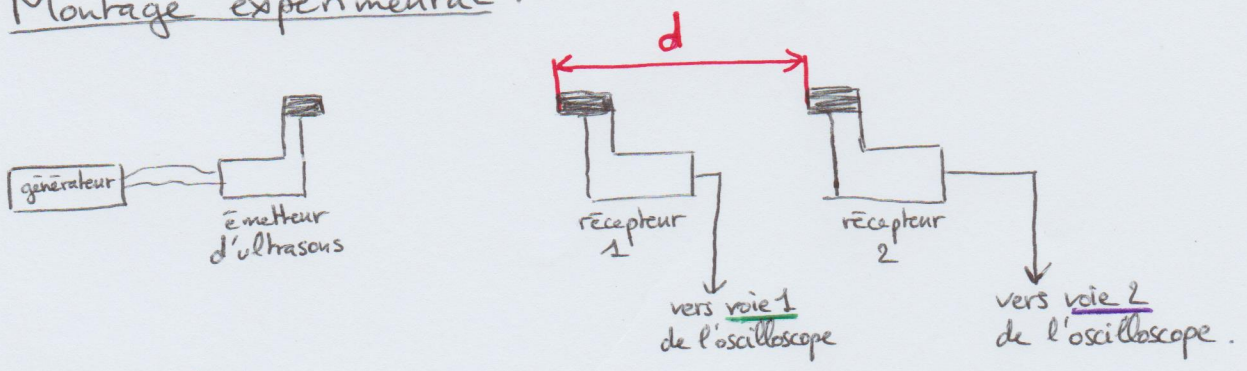 Montage expérimental :
d
générateur
émetteur
d'ultrasons
récepteur
1
récepteur
2
vers voie 1
de l'oscilloscope
vers voie 2
de l'oscilloscope.